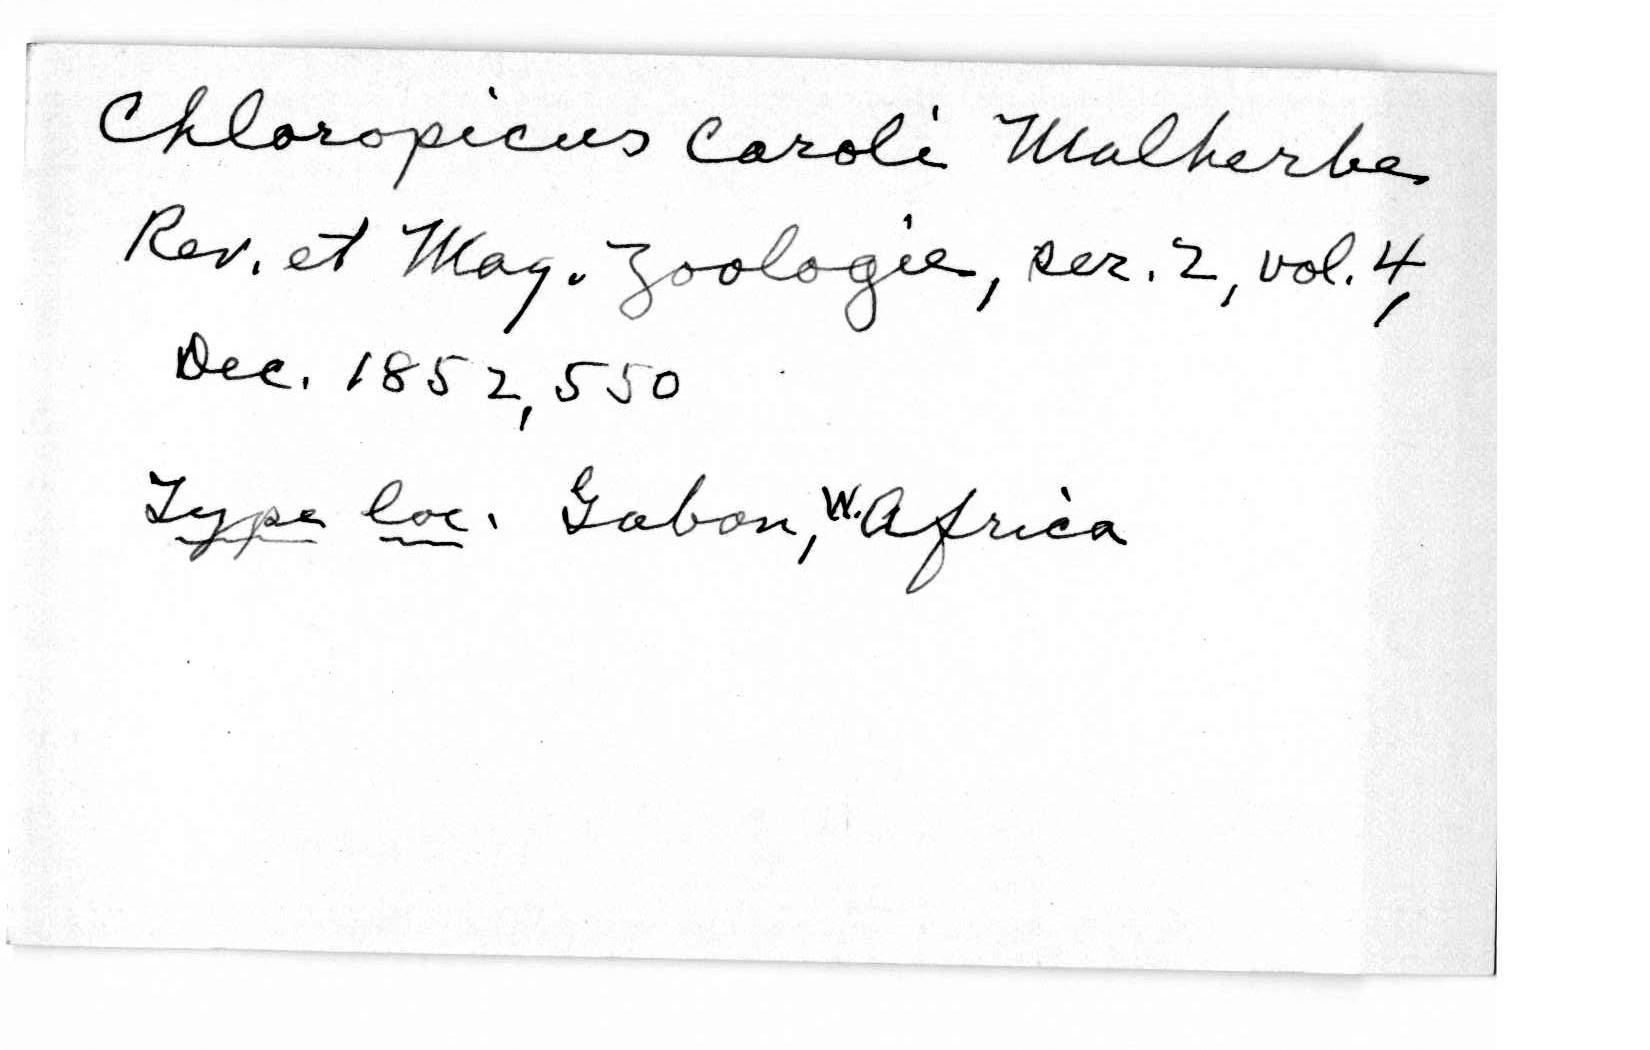 Chloropicus Caroli Malherbe
Rev. et Mag. Zoologie, ser. 2, vol. 4,
Dec. 1852, 550
Type loc. Gabon, W. Africa